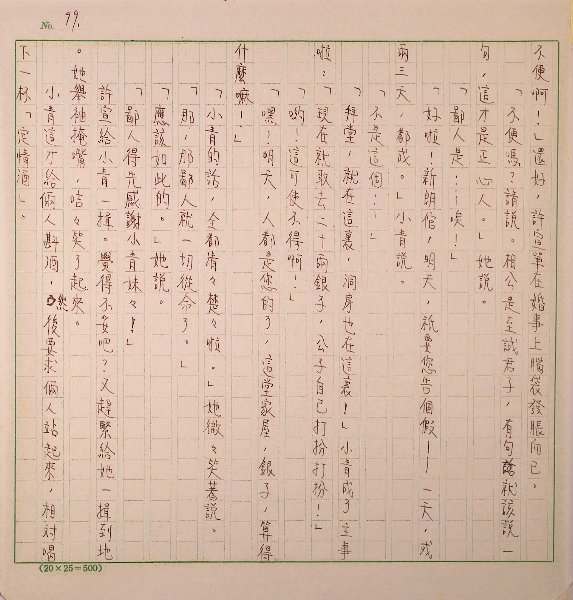 No. 99.
不便啊！」還好，許宣單在婚事上腦袋發脹而已。
「不便嗎？請說。相公是至誠君子，有句話就該說一
句，這才是正心人。」她說。
「鄙人是……唉！」
「好啦！新朗倌，明天，就要您告個假——一天，或
兩三天，都成。」小青說。
「不是這個……」
「拜堂，就在這裏，洞房也在這裏！」小青成了主事
啦：「現在就取去二十兩銀子，公子自已打扮打扮！」
「喲！這可使不得啊！」
「嘿！明天，人都是您的了，這堂家屋，銀子，算得
什麼嘛！」
「小青的話，全都清々楚々啦。」她微々笑著說。
「那，那鄙人就一切從命了。」
「應該如此的。」她說。
「鄙人得先感謝小青妹々！」
許宣給小青一揖。覺得不妥吧？又趕緊給她一揖到地
。她舉袖掩嘴，咭々笑了起來。
小青這才給倆人斟酒，然後要求倆人站起來，相對喝
下一杯「定情酒」。
(20×25=500)